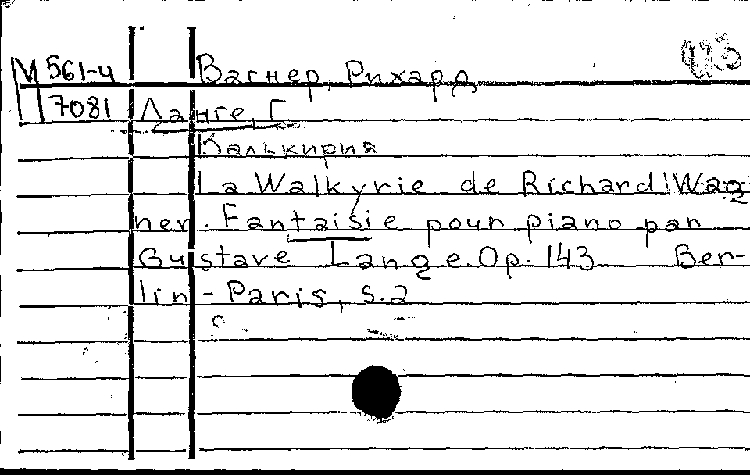 М 561-4 Вагнер, Рихард
7081 Ланге, Г
Валькирия
La Walkyrie de Richard Wag
ner. Fantaisie pour piano par
Gustave Lange. Op. 143 Ber-
lin - Paris, s.a